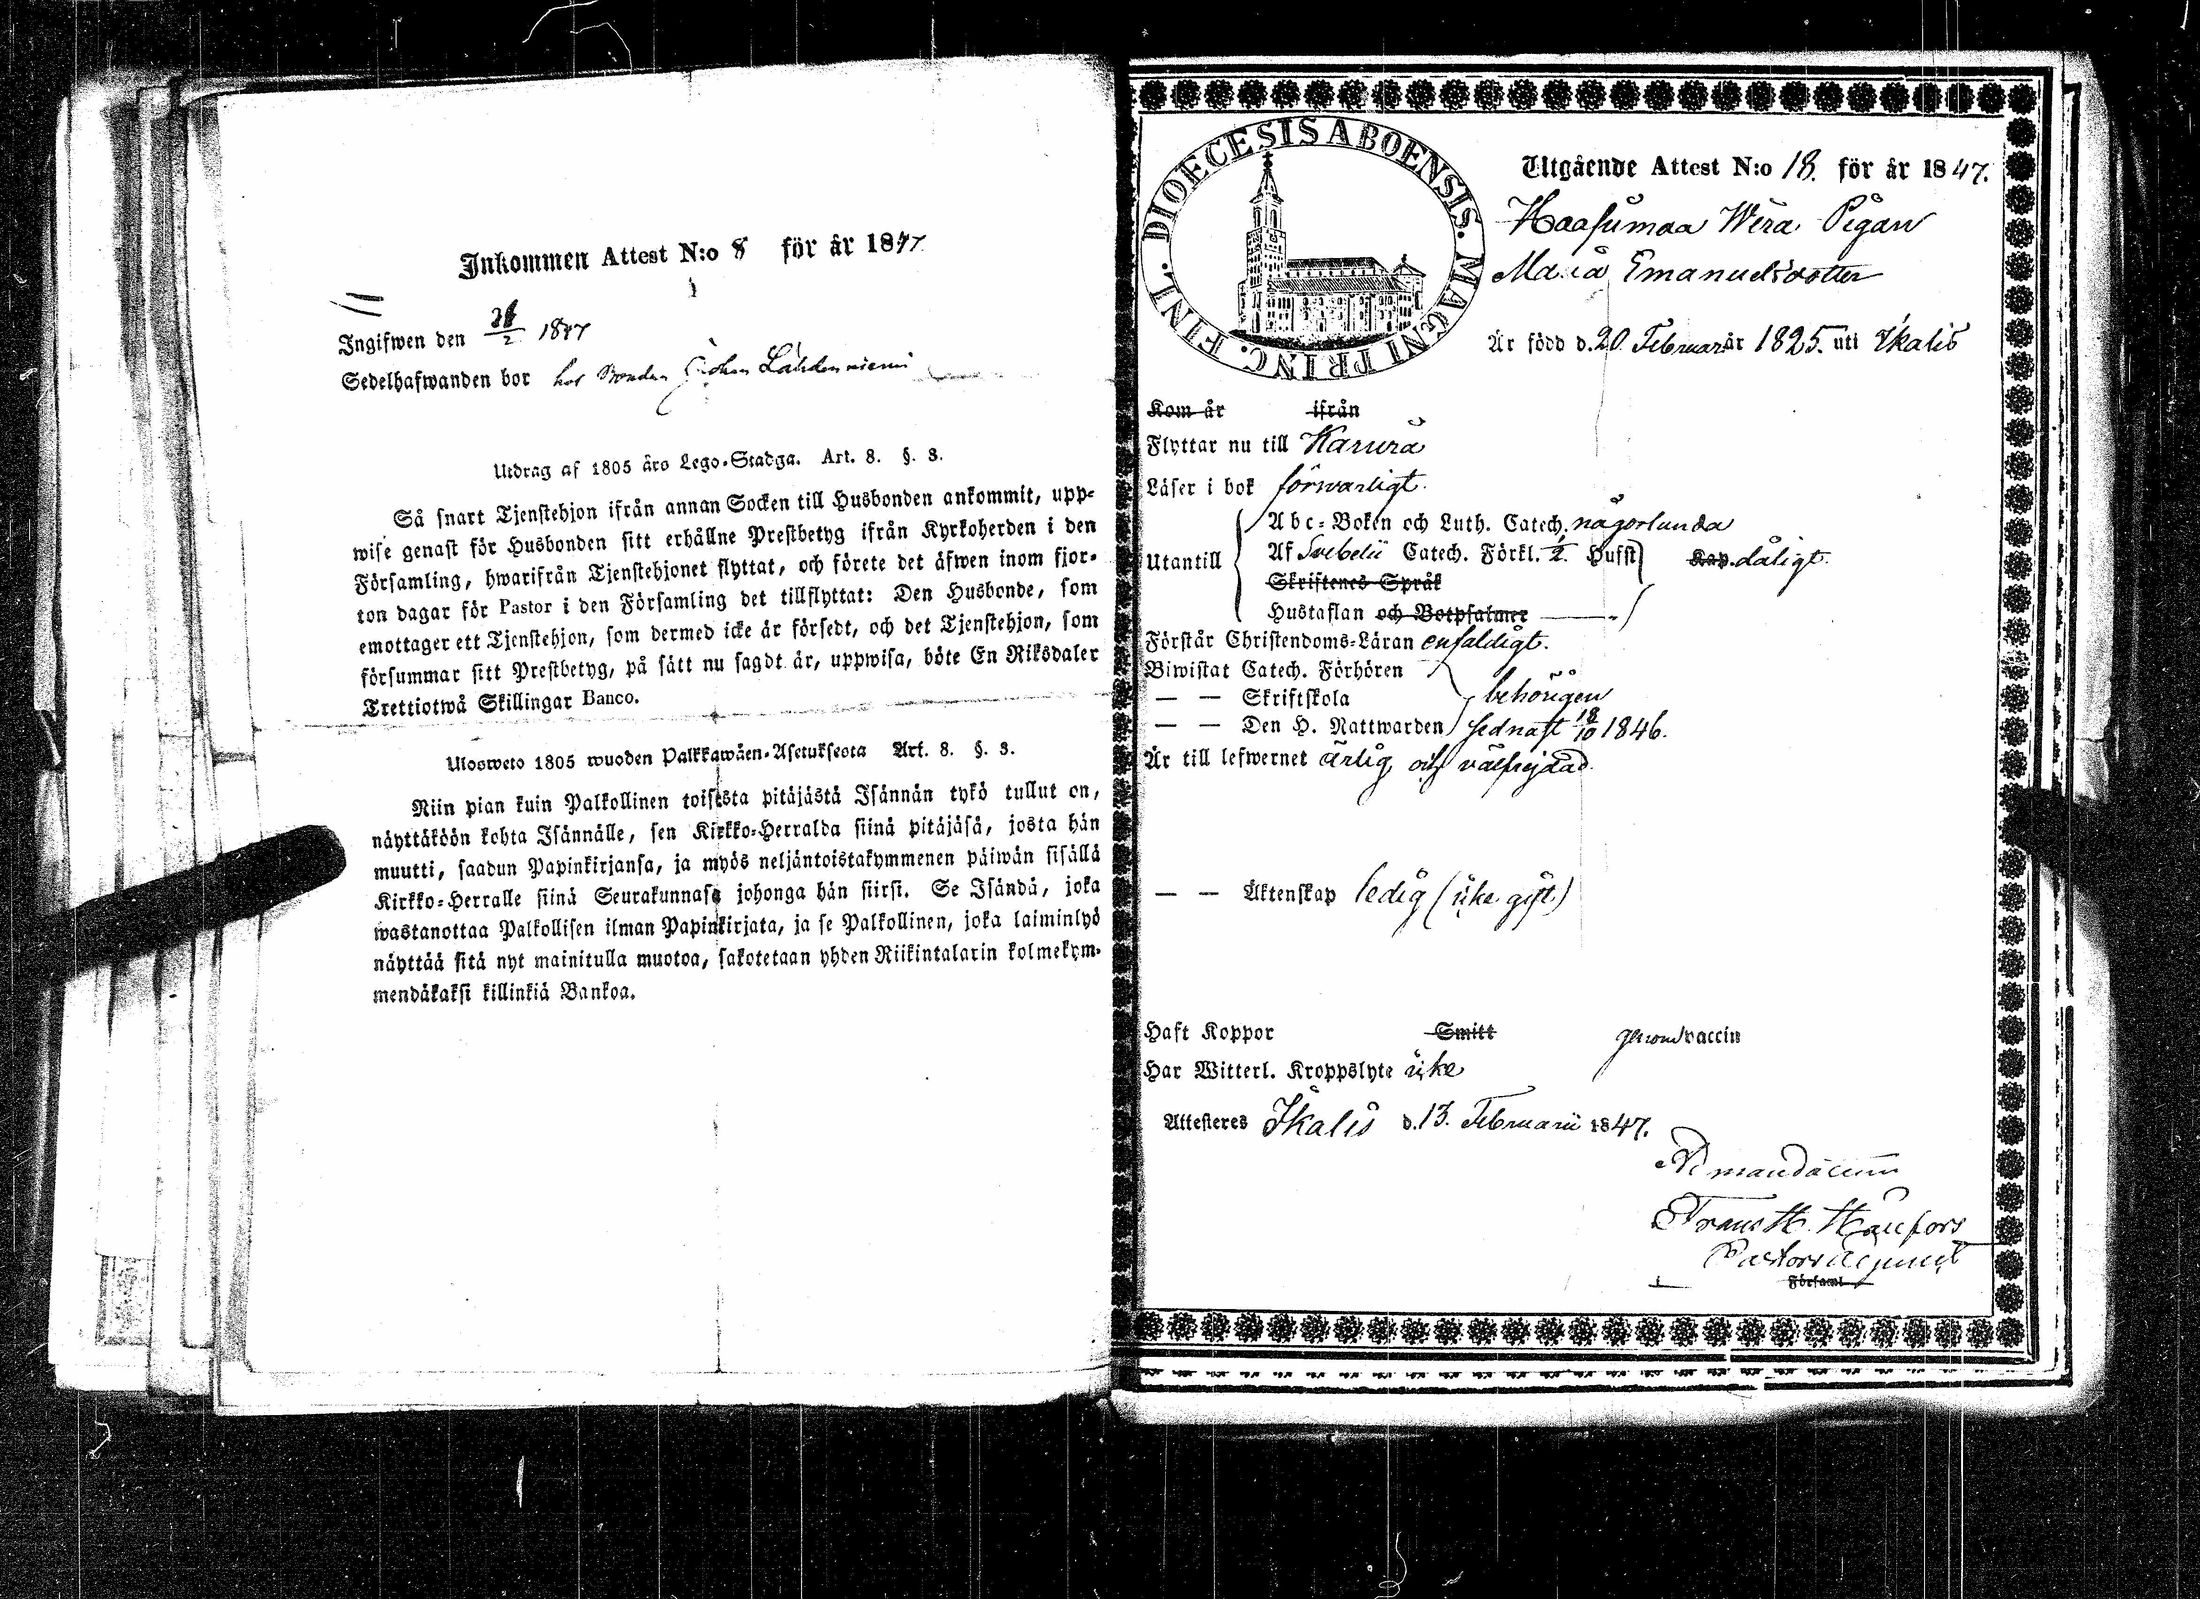 Inkommen Attest N:o 8 för år 1847
Ingifwen den 2 1847
Sedelhafwanden bor hos Bonden Johan Lähdenniemi
Utdrag af 1805 års Lego-Stadga. Art. 8. §. 3.
Så snart Tjenstehjon ifrån annan Socken till Husbonden ankommit, upp-
wise genast för Husbonden sitt erhållne Prestbetyg ifrån Kyrkoherden i den
Församling, hwarifrån Tjenstehjonet flyttat, och förete det äfwen inom fjor-
ton dagar för Pastor i den Församling det tillflyttat: Den Husbonde, som
emottager ett Tjenstehjon, som dermed icke är försedt, och det Tjenstehjon, som
försummar sitt Prestbetyg, på sätt nu sagdt är, uppwisa, böte En Riksdaler
Trettiotwå Skillingar Banco.
Ulosweto 1805 wuoden Palkkawäen-Asetuksesta Art. 8. §. 3.
Niin pian kuin Palkollinen toisesta pitäjästä Isännän tykö tullut on,
näyttäköön kohta Isännälle, sen Kirkko-Herralda siinä pitäjäsä, josta hän
muutti, saadun Papinkirjansa, ja myös neljäntoistakymmenen päiwän sisällä
Kirkko-Herralle siinä Seurakunnasa johonga hän siirsi. Se Isändä, joka
wastanottaa Palkollisen ilman Papinkirjata, ja se Palkollinen, joka laiminlyö
näyttää sitä nyt mainitulla muotoa, sakotetaan yhden Riikintalarin kolmekym-
mendäkaksi killinkiä Bankoa.
DIOECESIS ABOENSIS. MAGNI PRINC. FINL.
Utgående Attest N:o 18. för år 1847.
Haasumaa Wera Pigan
Maria Emanuelsdotter
Är född d. 20. Februari år 1825. uti Ikalis
Kom år ifrån
Flyttar nu till Karwia
Läser i bok förswarligt.
Utantill
Abc-Boken och Luth. Catech. någorlunda
Af Svebelii Catech. Förkl. 1/2. Hufst Kap. dåligt.
Skriftenes Språk
Hustaflan och Botpsalmer
Förstår Christendoms-Läran enfaldigt.
Biwistat Catech. Förhören
— — Skriftskola behörigen
— — Den H. Nattwarden sednast 18/10 1846.
Är till lefwernet ärlig och välfrejdad.
— — Äktenskap ledig (icke gift)
Haft Koppor Smitt genom vaccin
Har Witterl. Kroppslyte icke
Attesteres Ikalis d. 13. Februarii 1847.
Ad mandatum
Frans H.
Pastors Adjunct
Församl.